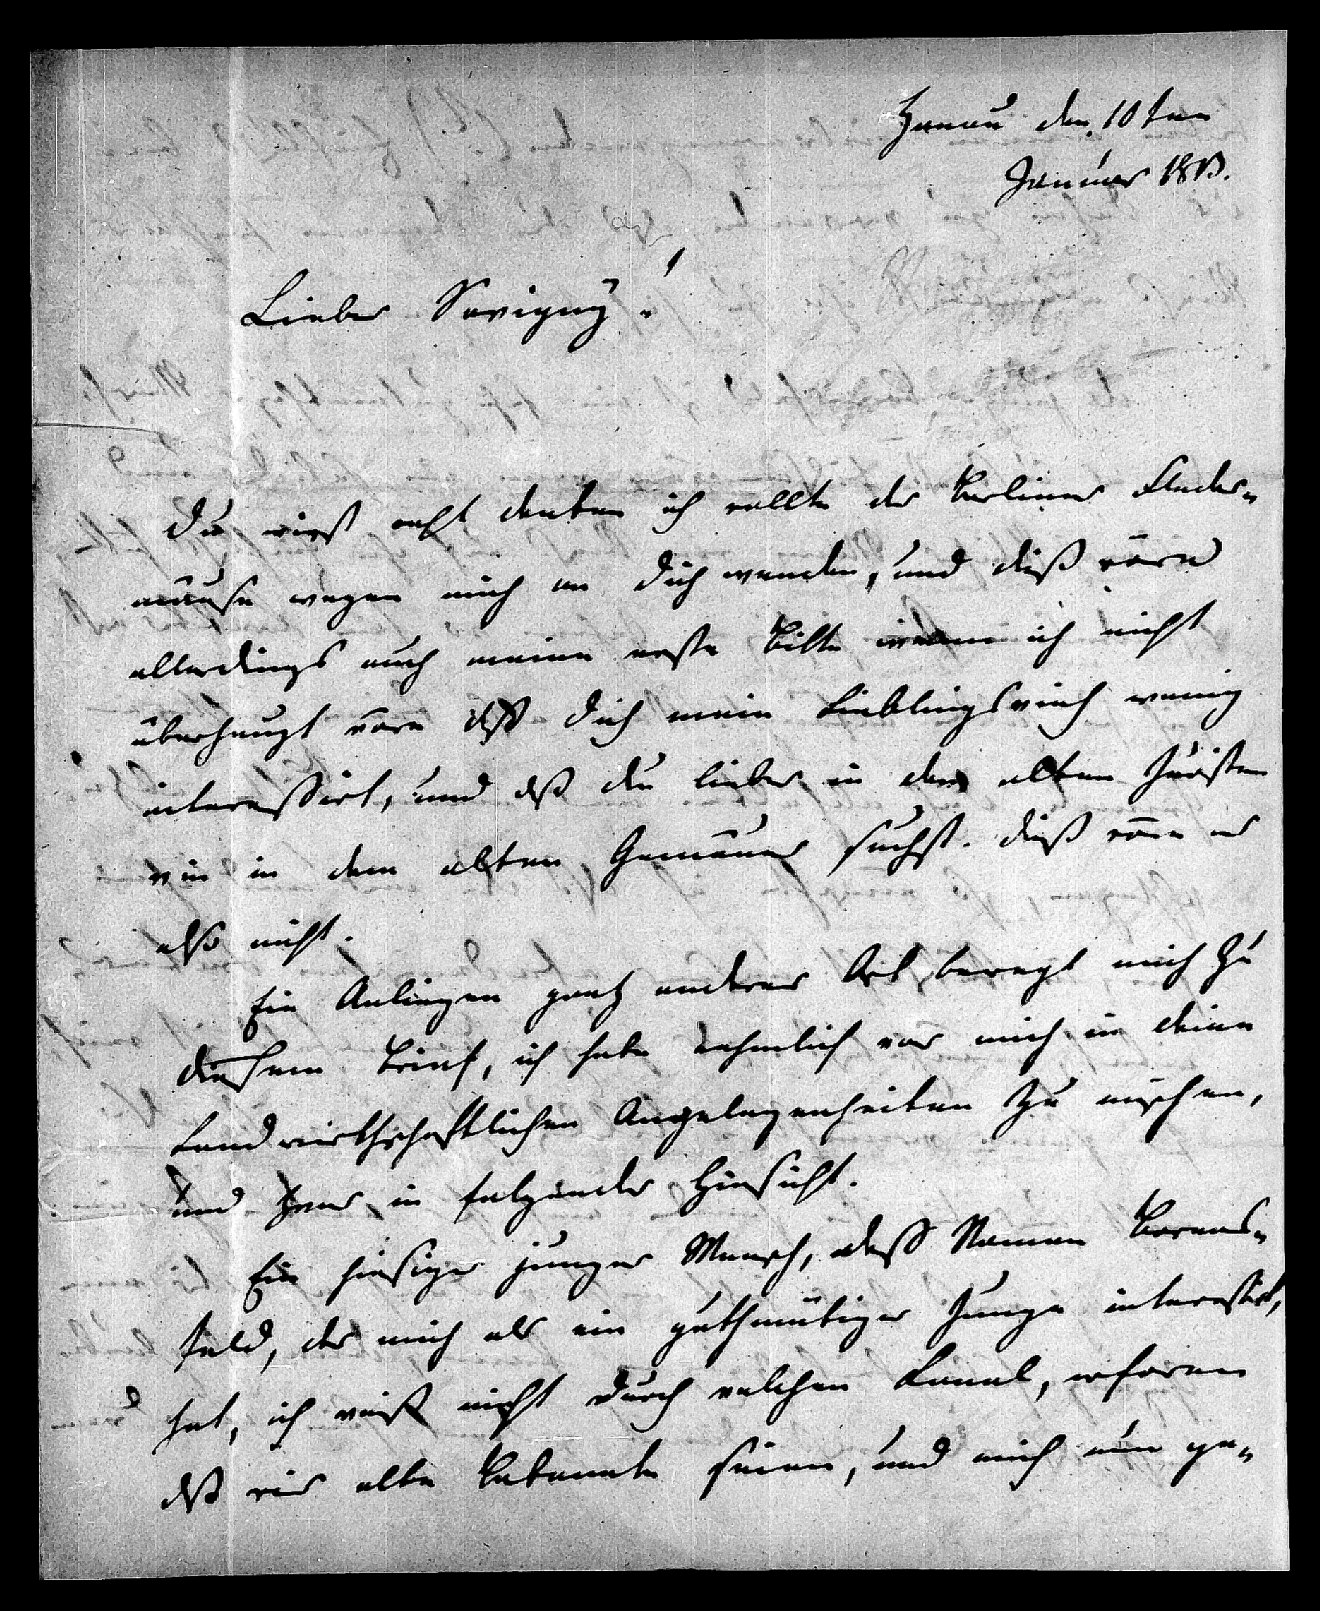 Hanau den 10ten
Januar 1813.
Lieber Savigny!
Du wirst echt denken ich wollte der Berliner Fleder-
mäuse wegen mich an dich wenden, und diß wäre
allerdings auch meine erste Bitte wenn ich nicht
überhaupt wäre dß dich mein Lieblingsvieh wenig
interessirt, und dß du lieber in den alten Juristen
wie in dem alten Gemäuer suchst. diß wäre es
also nicht.
Ein Anliegen gantz anderer Art bewegt mich zu
diesem Brief, ich habe nehmlich vor mich in deine
Landwirthschaftlichen Angelegenheiten zu mischen,
und zwar in folgender Hinsicht.
Ein hiesiger junger Mensch, deß Namen Berens-
feld, der mich als ein guthmütiger Junge interessirt,
hat, ich weiß nicht durch welchen Kanal, erfaren
dß wir alte Bekannte seien, und mich nun ge-